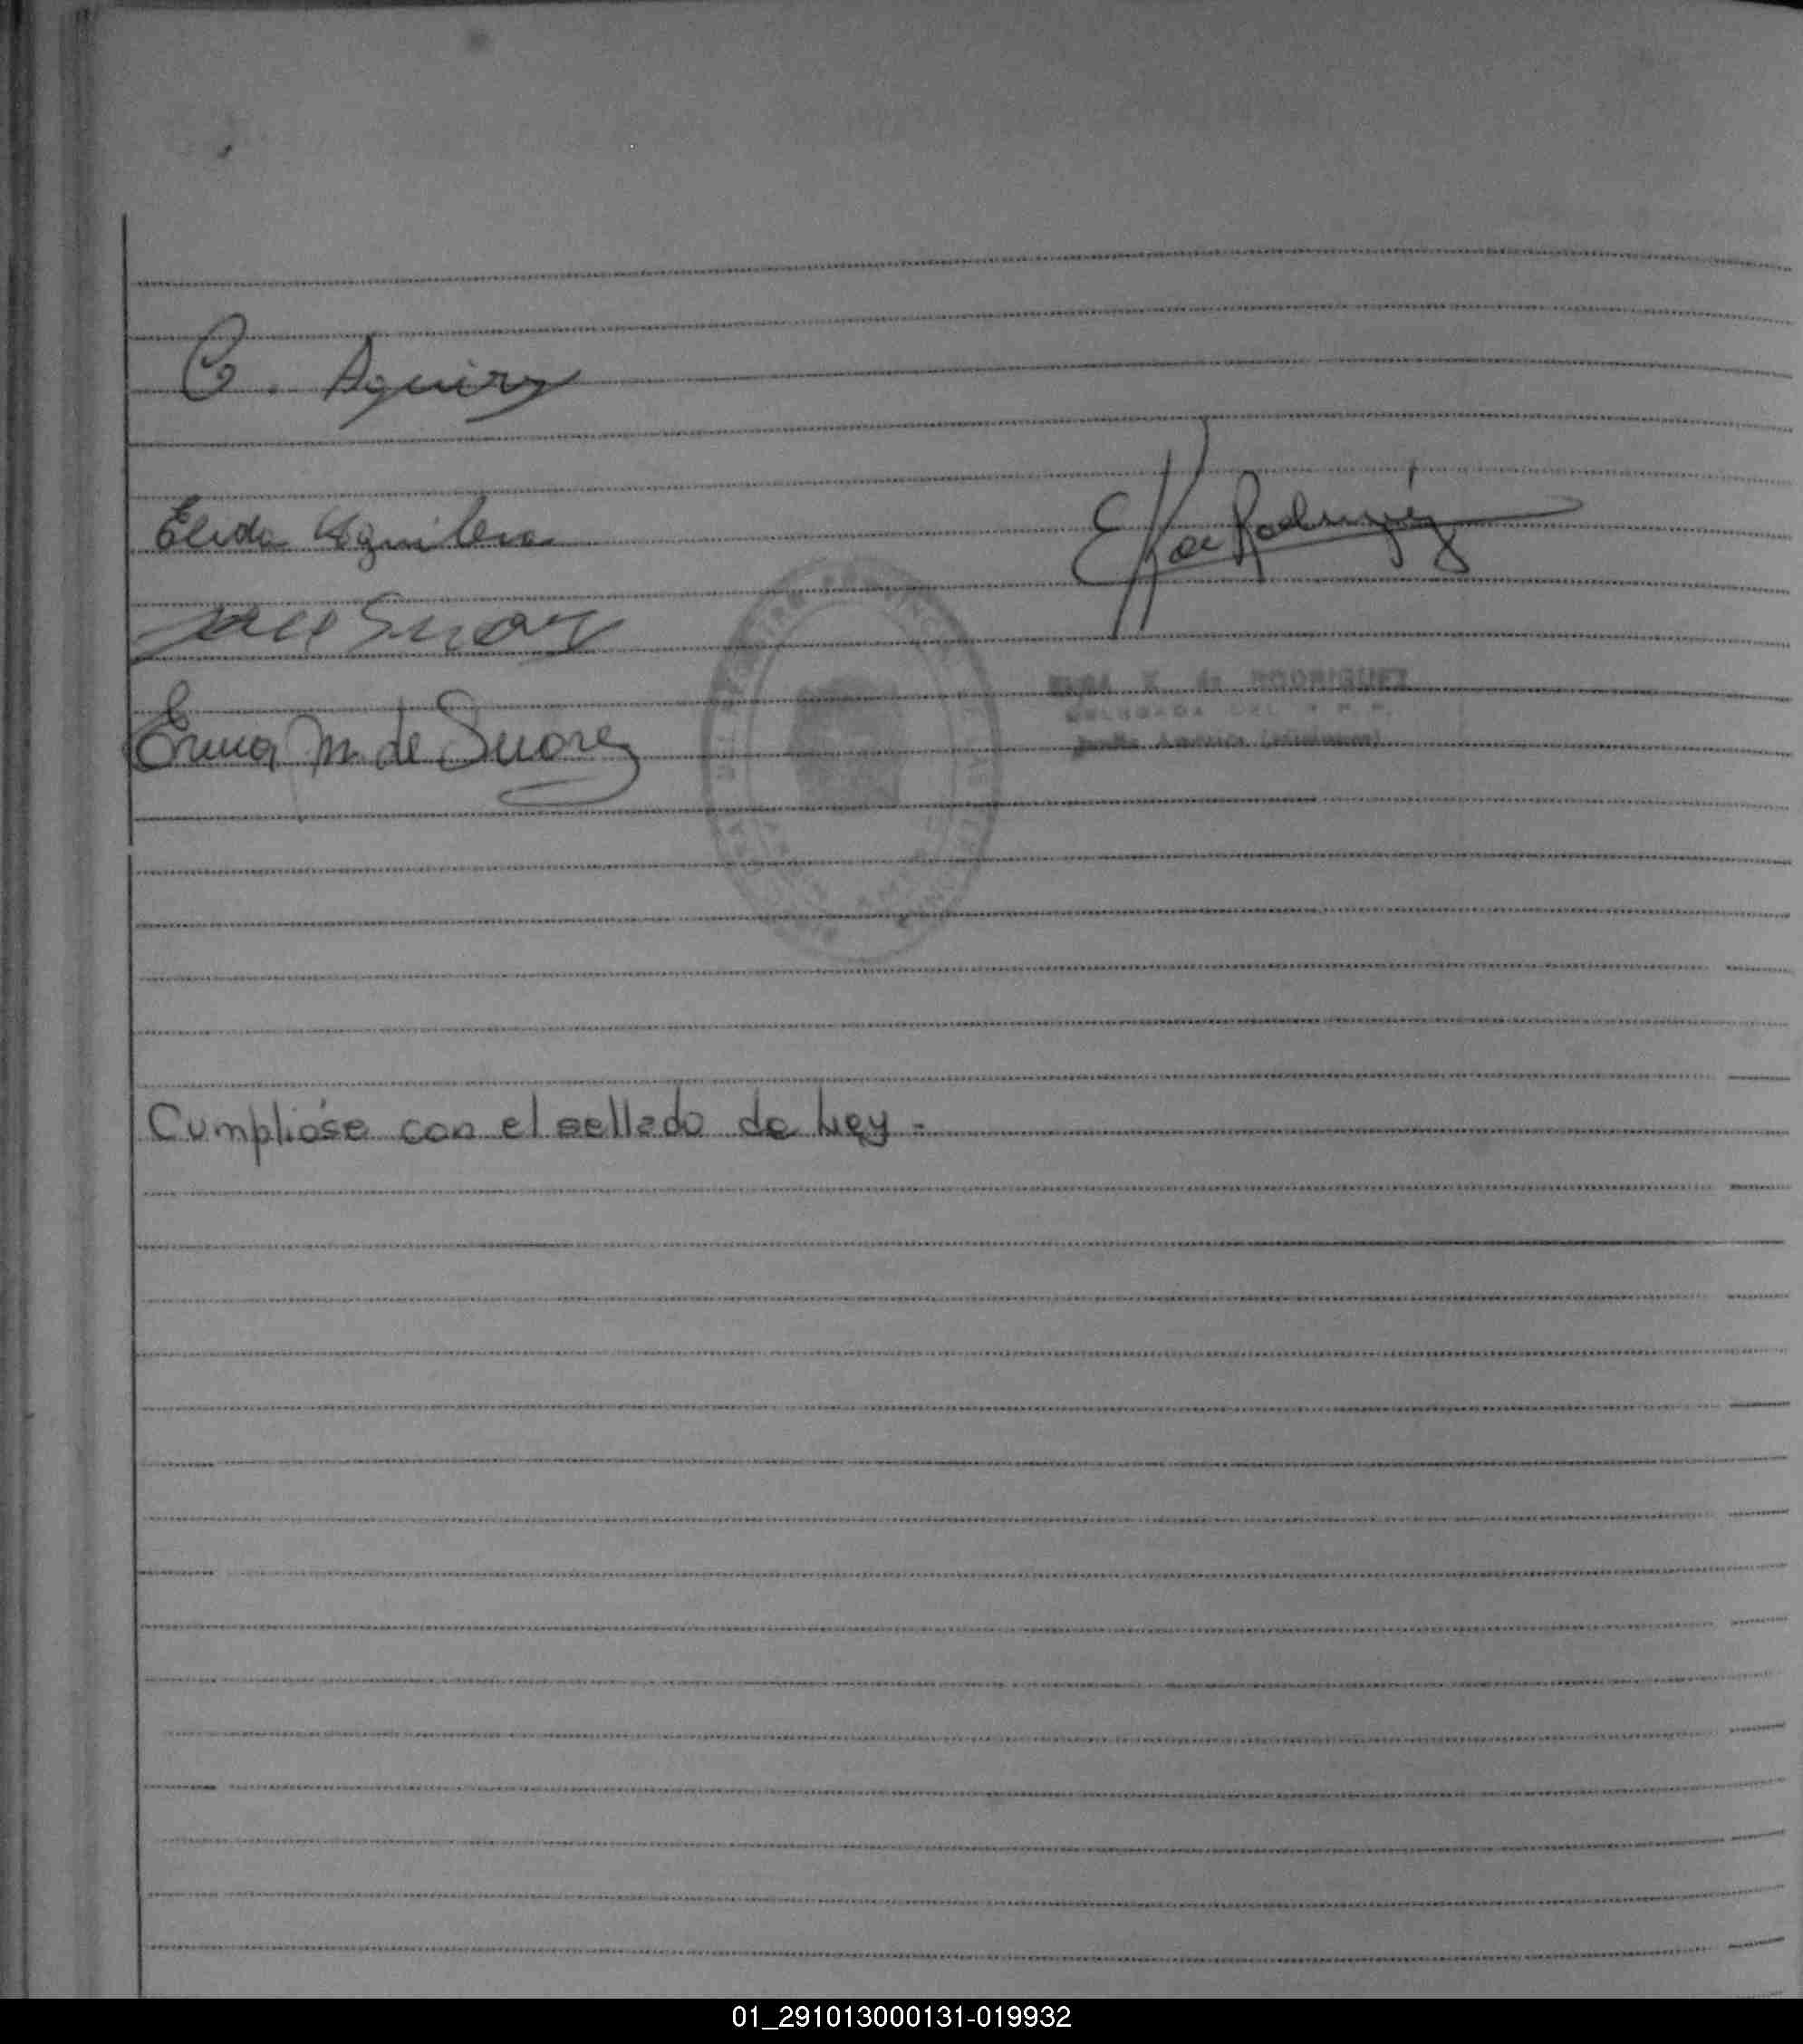 C. Aguirre
Elida Aguilera
E K de Rodriguez
Jose Suarez
K. de RODRIGUEZ
DELEGADA DEL R. P. P.
Erma M. de Suarez
Cumplióse con el sellado de Ley.-
01_291013000131-019932